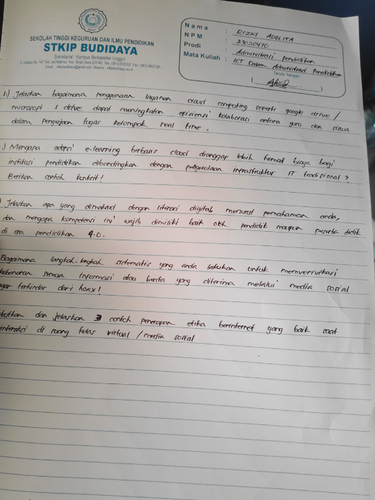 SEKOLAH TINGGI KEGURUAN DAN ILMU PENDIDIKAN
STKIP BUDIDAYA
Nama : RIZKI ADELIA
NPM :
Prodi : Administrasi pendidikan
Mata Kuliah : ICT Dalam Administrasi Pendidikan
Tanda Tangan
1) Jelaskan bagaimana penggunaan layanan cloud computing seperti google drive /
microsoft 1 drive dapat meningkatkan efisiensi kolaborasi antara guru dan siswa
dalam pengerjaan tugas kelompok real time.
) Mengapa adopsi e-learning berbasis cloud dianggap lebih hemat biaya bagi
institusi pendidikan dibandingkan dengan pengadaan infrastruktur IT tradisional ?
Berikan contoh konkrit!
Jelaskan apa yang dimaksud dengan literasi digital menurut pemahaman anda,
dan mengapa kompetensi ini wajib dimiliki baik oleh pendidik maupun peserta didik
di era pendidikan 4.0.
Bagaimana langkah-langkah sistematis yang anda lakukan untuk memverifikasi
kebenaran sebuah informasi atau berita yang diterima melalui media sosial
agar terhindar dari hoax!
dan jelaskan 3 contoh penerapan etika berinternet yang baik saat
di ruang kelas virtual / media sosial